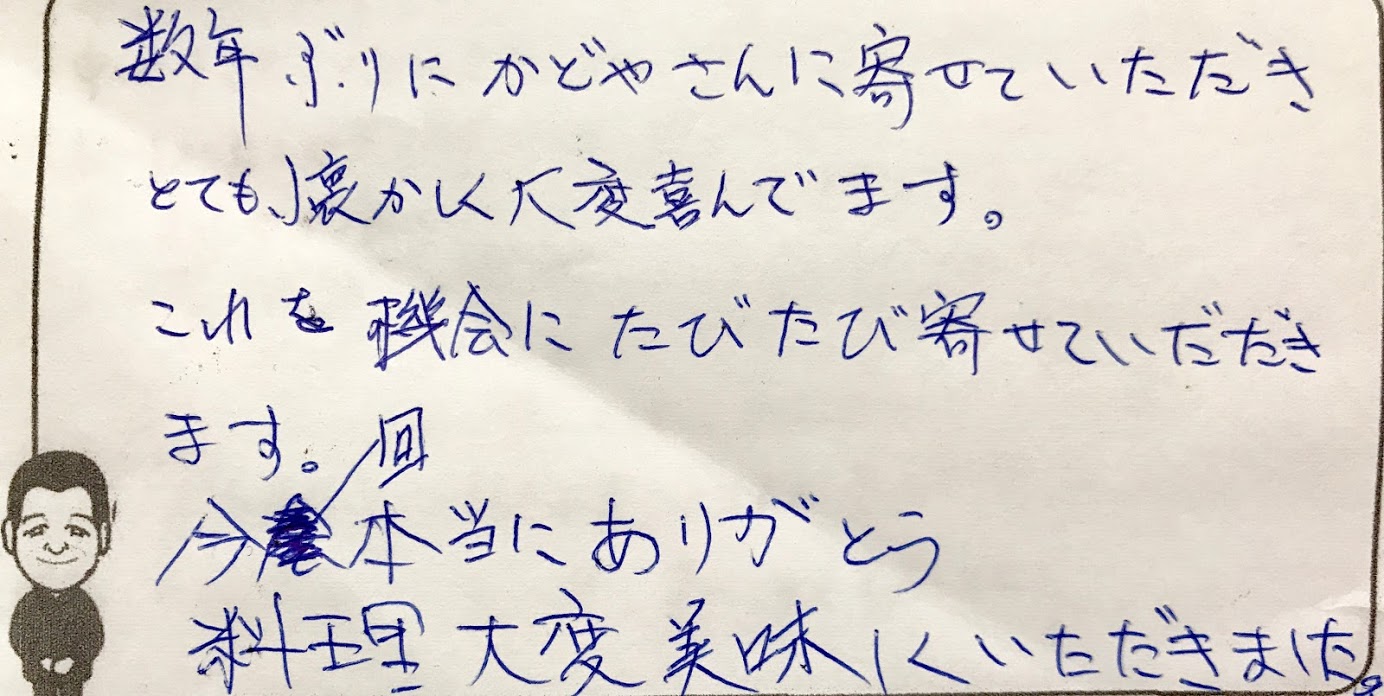 数年ぶりにかどやさんに寄せていただき
とても懐かしく大変喜んでます。
これを機会にたびたび寄せていだだき
ます。
今回本当にありがとう
料理大変美味しくいただきました。